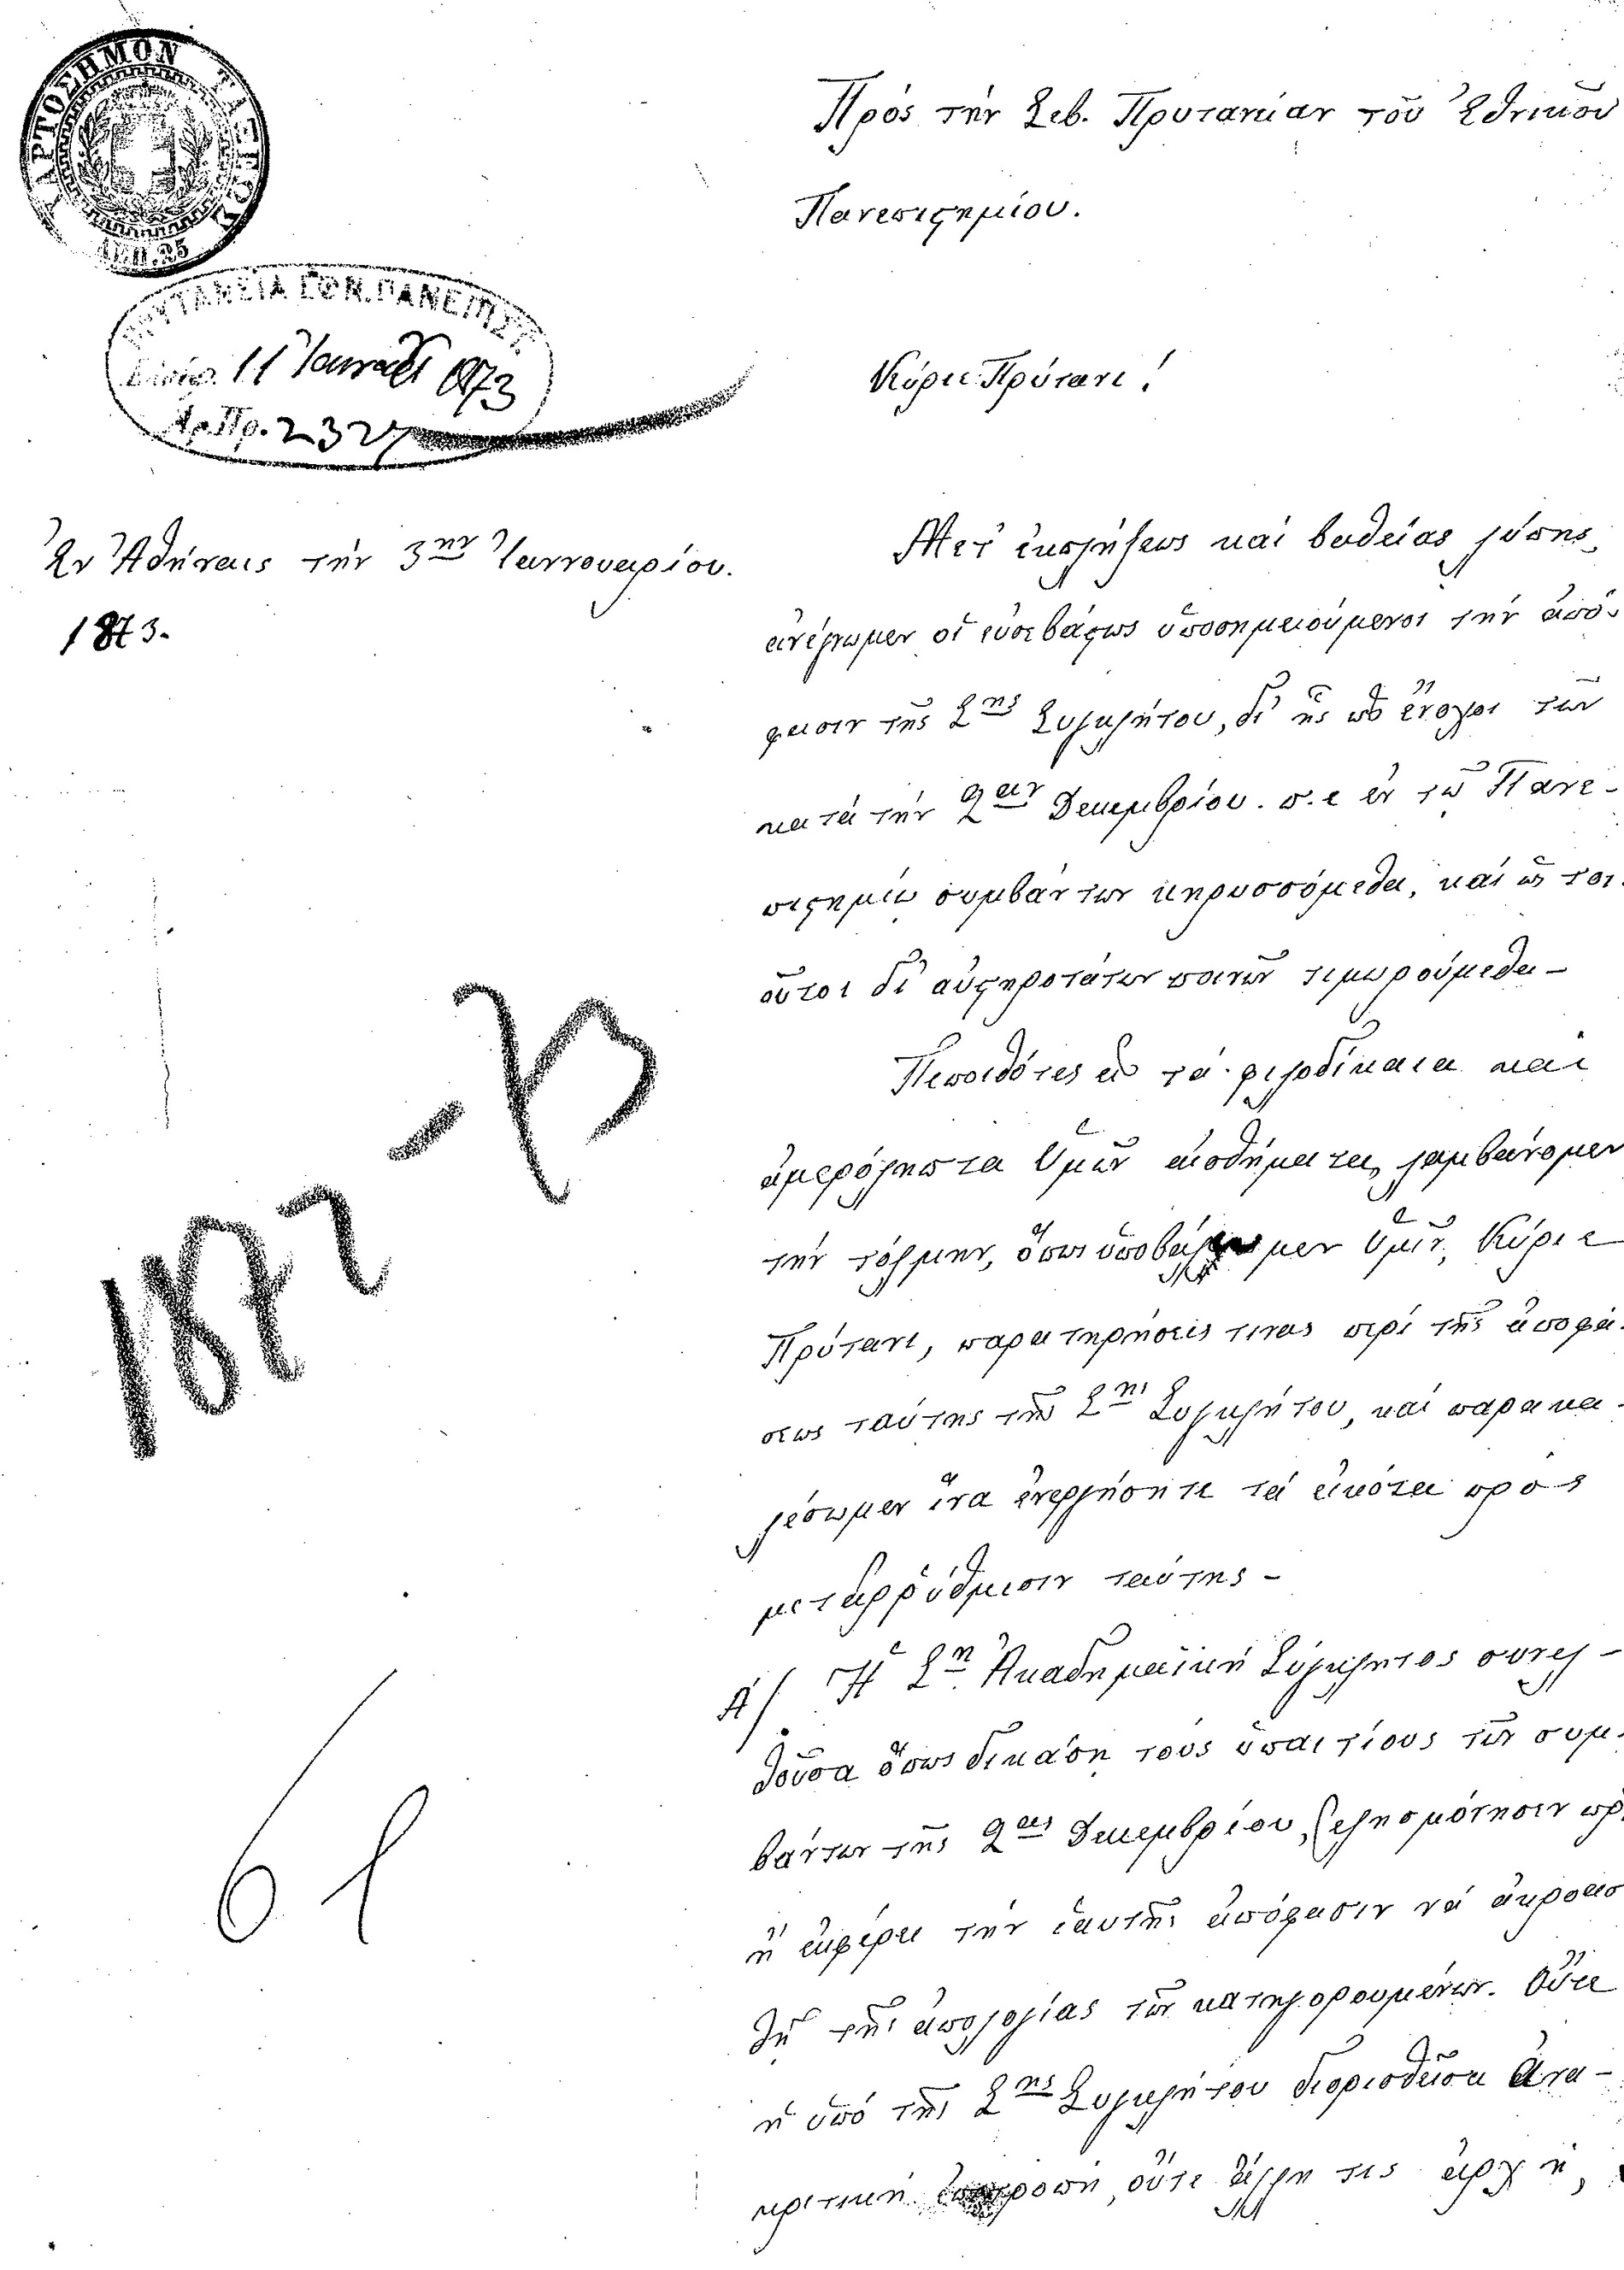 ΧΑΡΤΟΣΗΜΟΝ ΤΑΞΕΩΣ
ΛΕΠ. 25
Πρὸς τὴν Σεβ. Πρυτανείαν τοῦ Ἐθνικοῦ
Πανεπιστημίου.
ΠΡΥΤΑΝΕΙΑ ΕΘΝ. ΠΑΝΕΠΙΣΤ.
11 Ἰανουαρ 1873
Αρ. Πρ. 2327
Κύριε Πρύτανι!
Ἐν Ἀθήναις τὴν 3ην Ἰαννουαρίου.
1873.
Μετ' ἐκπλήξεως καὶ βαθείας λύπης
ἀνέγνωμεν οἱ εὐσεβάστως ὑποσημειούμενοι τὴν ἀπό-
φασιν τῆς Σης Συγκλήτου, δι' ἧς ὡς ἔνοχοι τῶν
κατὰ τὴν 2αν Δεκεμβρίου. π. ε ἐν τῷ Πανε-
πιστημίῳ συμβάντων κηρυσσόμεθα, καὶ ὡς τοι-
οῦτοι δι' αὐστηροτάτων ποινῶν τιμωρούμεθα –
Πεποιθότες εἰς τὰ φιλοδίκαια καὶ
ἀμερόληπτα Ὑμῶν αἰσθήματα, λαμβάνομεν
τὴν τόλμην, ὅπως ὑποβάλωμεν Ὑμῖν, Κύριε
Πρύτανι, παρατηρήσεις τινὰς περὶ τῆς ἀποφά-
σεως ταύτης τῆς Σης Συγκλήτου, καὶ παρακα-
λέσωμεν ἵνα ἐνεργήσητε τὰ εἰκότα πρὸς
μεταρρύθμισιν ταύτης –
1872-73
Α/ Ἡ Ση Ἀκαδημαϊκὴ Σύγκλητος συνελ-
θοῦσα ὅπως δικάσῃ τοὺς ὑπαιτίους τῶν συμ-
βάντων τῆς 2ας Δεκεμβρίου, ἐλησμόνησεν πρὶ
ἢ ἐκφέρει τὴν ἑαυτῆς ἀπόφασιν νὰ ἀκροασ
θῇ τῆς ἀπολογίας τῶν κατηγορουμένων. Οὔτε
ἡ ὑπὸ τῆς Σης Συγκλήτου διορισθεῖσα Ἀνα-
κριτικὴ ἐπιτροπὴ, οὔτε ἄλλη τις ἀρχὴ,
61